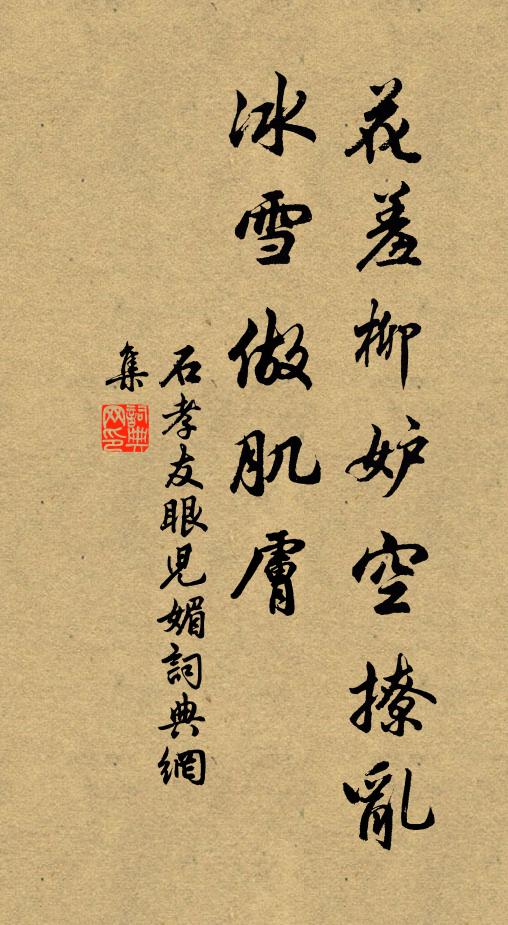 花羞柳妒空撩亂
冰雪做肌膚
石孝友眼兒媚詞典網
集
詞典网印